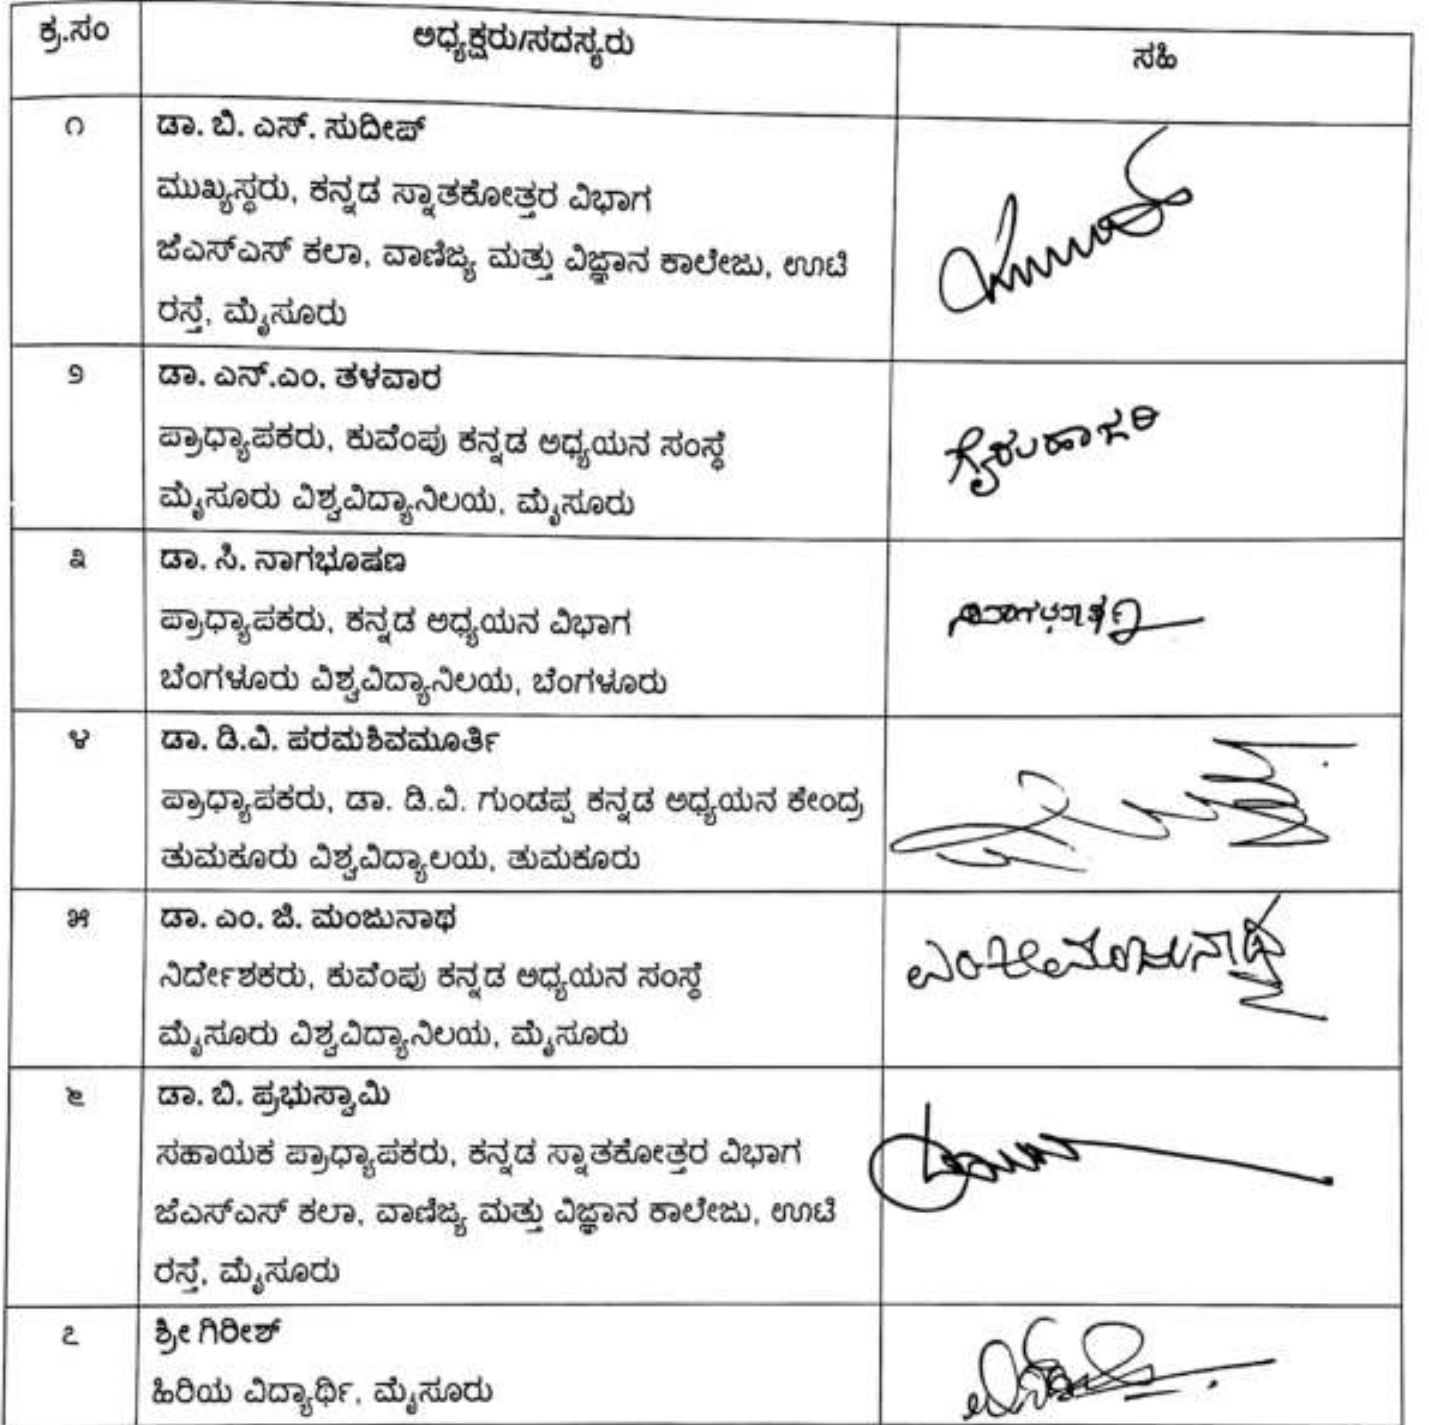 ಕ್ರ.ಸಂ ಅಧ್ಯಕ್ಷರು/ಸದಸ್ಯರು ಸಹಿ
೧ ಡಾ. ಬಿ. ಎಸ್. ಸುದೀಪ್
ಮುಖ್ಯಸ್ಥರು, ಕನ್ನಡ ಸ್ನಾತಕೋತ್ತರ ವಿಭಾಗ
ಜೆಎಸ್‌ಎಸ್ ಕಲಾ, ವಾಣಿಜ್ಯ ಮತ್ತು ವಿಜ್ಞಾನ ಕಾಲೇಜು, ಊಟಿ
ರಸ್ತೆ, ಮೈಸೂರು
೨ ಡಾ. ಎನ್.ಎಂ. ತಳವಾರ
ಪ್ರಾಧ್ಯಾಪಕರು, ಕುವೆಂಪು ಕನ್ನಡ ಅಧ್ಯಯನ ಸಂಸ್ಥೆ
ಗೈರುಹಾಜರಿ
ಮೈಸೂರು ವಿಶ್ವವಿದ್ಯಾನಿಲಯ, ಮೈಸೂರು
೩ ಡಾ. ಸಿ. ನಾಗಭೂಷಣ
ಪ್ರಾಧ್ಯಾಪಕರು, ಕನ್ನಡ ಅಧ್ಯಯನ ವಿಭಾಗ
ಬೆಂಗಳೂರು ವಿಶ್ವವಿದ್ಯಾನಿಲಯ, ಬೆಂಗಳೂರು
೪ ಡಾ. ಡಿ.ವಿ. ಪರಮಶಿವಮೂರ್ತಿ
ಪ್ರಾಧ್ಯಾಪಕರು, ಡಾ. ಡಿ.ವಿ. ಗುಂಡಪ್ಪ ಕನ್ನಡ ಅಧ್ಯಯನ ಕೇಂದ್ರ
ತುಮಕೂರು ವಿಶ್ವವಿದ್ಯಾಲಯ, ತುಮಕೂರು
೫ ಡಾ. ಎಂ. ಜಿ. ಮಂಜುನಾಥ
ನಿರ್ದೇಶಕರು, ಕುವೆಂಪು ಕನ್ನಡ ಅಧ್ಯಯನ ಸಂಸ್ಥೆ
ಮೈಸೂರು ವಿಶ್ವವಿದ್ಯಾನಿಲಯ, ಮೈಸೂರು
೬ ಡಾ. ಬಿ. ಪ್ರಭುಸ್ವಾಮಿ
ಸಹಾಯಕ ಪ್ರಾಧ್ಯಾಪಕರು, ಕನ್ನಡ ಸ್ನಾತಕೋತ್ತರ ವಿಭಾಗ
ಜೆಎಸ್‌ಎಸ್ ಕಲಾ, ವಾಣಿಜ್ಯ ಮತ್ತು ವಿಜ್ಞಾನ ಕಾಲೇಜು, ಊಟಿ
ರಸ್ತೆ, ಮೈಸೂರು
೭ ಶ್ರೀ ಗಿರೀಶ್
ಹಿರಿಯ ವಿದ್ಯಾರ್ಥಿ, ಮೈಸೂರು